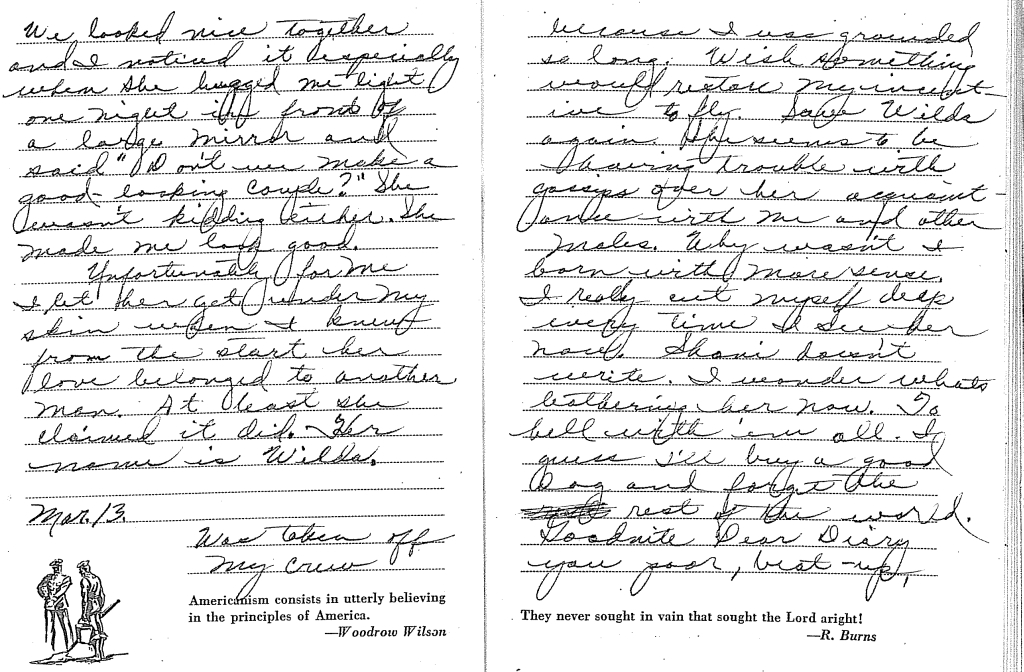 We looked nice together
and I noticed it especially
when she hugged me tight
one night in front of
a large mirror and
said "Don't we make a
good-looking couple?" She
wasn't kidding either. She
made me look good.
Unfortunately for me
I let her get under my
skin when I knew
from the start her
love belonged to another
man. At least she
claimed it did. Her
name is Wilda.
Mar. 13.
Was taken off
my crew
Americanism consists in utterly believing
in the principles of America.
—Woodrow Wilson
because I was grounded
so long. Wish something
would restore my incent-
ive to fly. Saw Wilda
again. She seems to be
having trouble with
gossips over her acquaint-
ance with me and other
males. Why wasn't I
born with more sense.
I really cut myself deep
every time I see her
now. Shani doesn't
write. I wonder whats
bothering her now. To
hell with 'em all. I
guess I'll buy a good
Dog and forget the
rest of the world.
Goodnite Dear Diary
you poor, beat-up,
They never sought in vain that sought the Lord aright!
—R. Burns